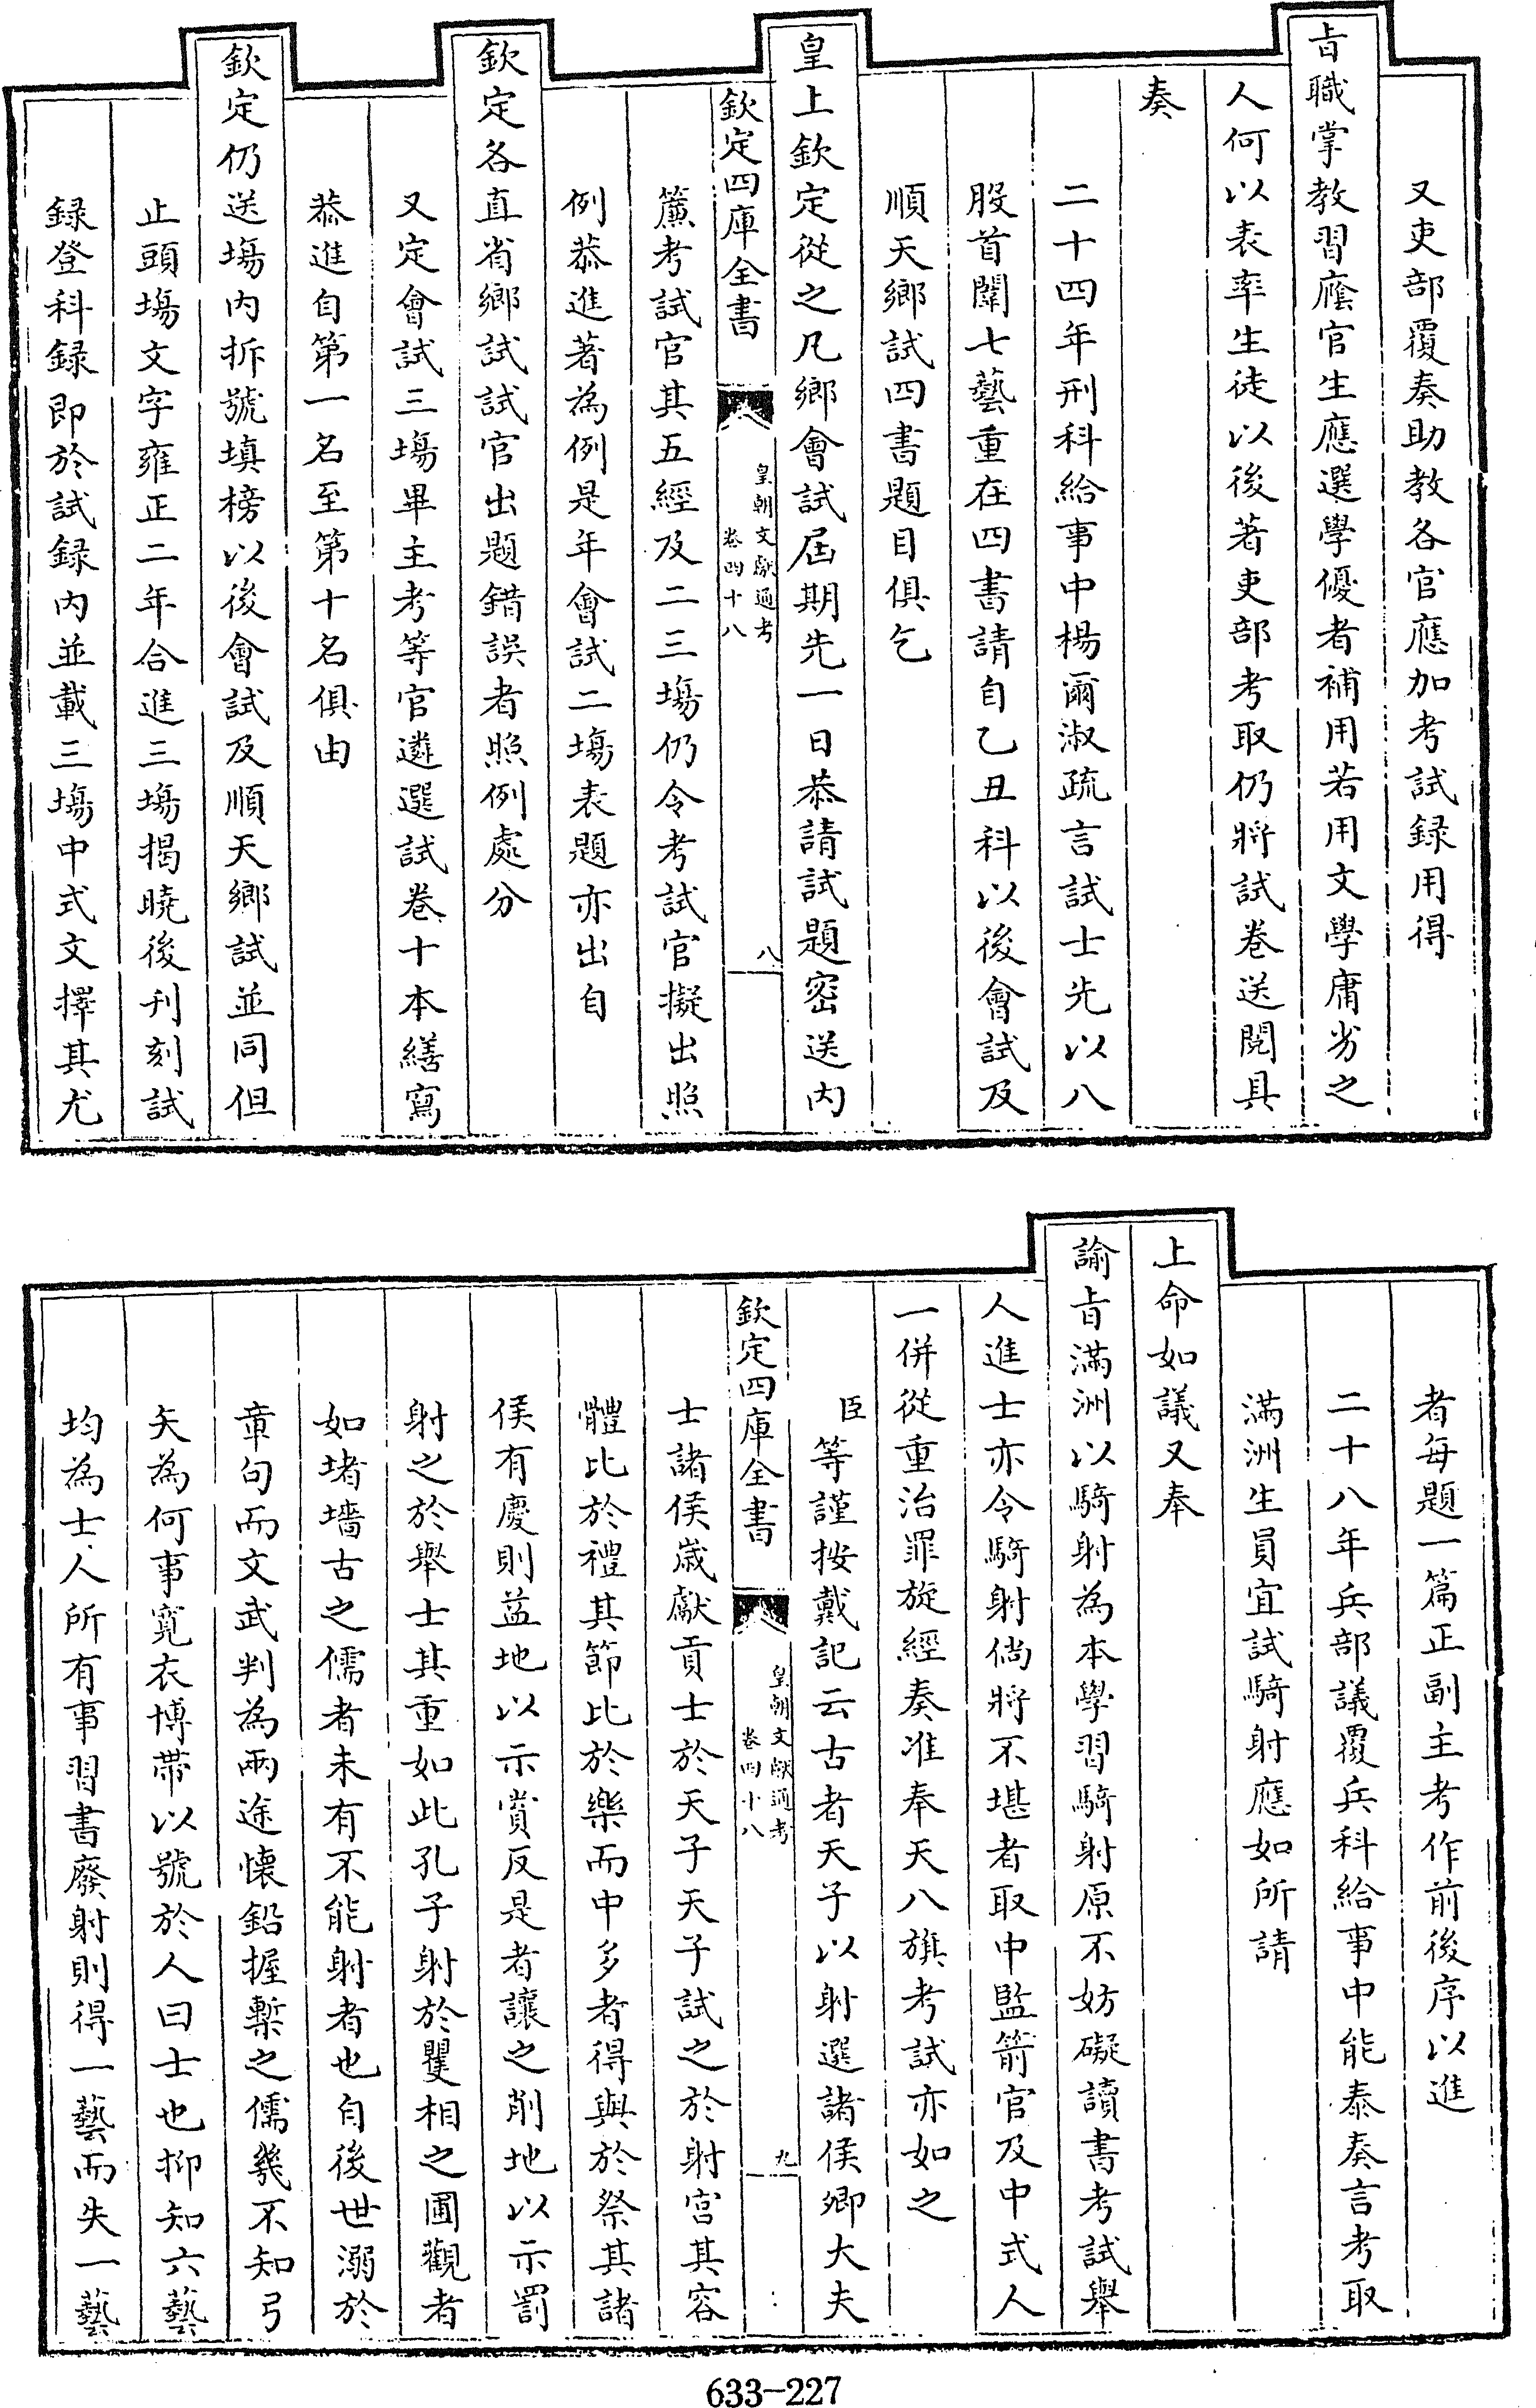 又吏部覆奏助教各官應加考試録用得
旨職掌教習廕官生應選學優者補用若用文學庸劣之
人何以表率生徒以後著吏部考取仍將試卷送閱具
奏
二十四年刑科給事中楊爾淑疏言試士先以八
股首闈七藝重在四書請自乙丑科以後會試及
順天鄉試四書題目俱乞
皇上欽定從之凡鄉會試屆期先一日恭請試題密送内
欽定四庫全書
皇朝文獻通考
卷四十八
八
簾考試官其五經及二三塲仍令考試官擬出照
例恭進著為例是年會試二塲表題亦出自
欽定各直省鄉試試官出題錯誤者照例處分
又定會試三塲畢主考等官遴選試卷十本繕寫
恭進自第一名至第十名俱由
欽定仍送塲内拆號填榜以後會試及順天鄉試並同但
止頭塲文字雍正二年合進三塲揭曉後刋刻試
録登科録即於試録内並載三塲中式文擇其尤
者每題一篇正副主考作前後序以進
二十八年兵部議覆兵科給事中能泰奏言考取
滿洲生員宜試騎射應如所請
上命如議又奉
諭旨滿洲以騎射為本學習騎射原不妨礙讀書考試舉
人進士亦令騎射倘將不堪者取中監箭官及中式人
一併從重治罪旋經奏准奉天八旗考試亦如之
臣等謹按戴記云古者天子以射選諸侯卿大夫
欽定四庫全書
皇朝文獻通考
卷四十八
九
士諸侯歲獻貢士於天子天子試之於射宮其容
體比於禮其節比於樂而中多者得與於祭其諸
侯有慶則益地以示賞反是者讓之削地以示罰
射之於舉士其重如此孔子射於矍相之圃觀者
如堵墻古之儒者未有不能射者也自後世溺於
章句而文武判為兩途懐鉛握槧之儒幾不知弓
矢為何事寛衣博帶以號於人曰士也抑知六藝
均為士人所有事習書廢射則得一藝而失一藝
633-227